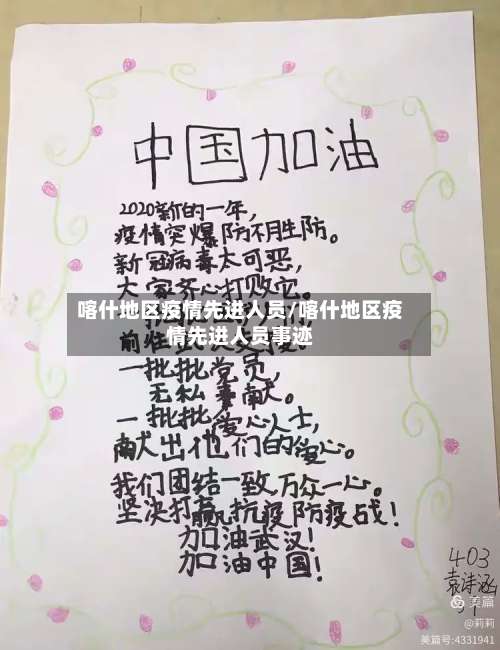 中国加油
2020新的一年，
疫情突爆防不胜防。
新冠病毒太可恶，
大家齐心打败它。
喀什地区疫情先进人员/喀什地区疫
情先进人员事迹
前往
一批批党员，
无私奉献。
一批批爱心人士，
献出他们的爱心。
我们团结一致，万众一心。
坚决打赢抗疫防疫战！
加油武汉！
加油中国！
403
袁诗涵
美篇
@莉莉
美篇号:4331941